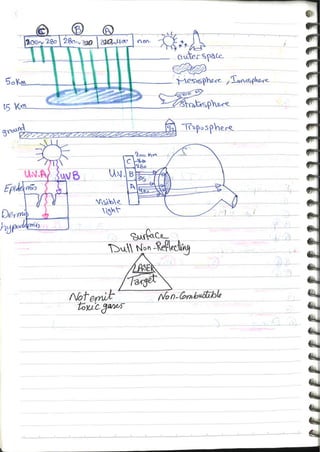 C B A
200nm 280 280 nm
outer space
50km
Mesosphere , Ionosphere
15 Km
Stratosphere
ground
Troposphere
U.V.A UVB
Epidermis
Dermis
hypodermis
U.V.
C
B
A
Visible
light
Surface
Dull Non-Reflecting
LASER
Target
Not emit
toxic gases
Non-Combustible